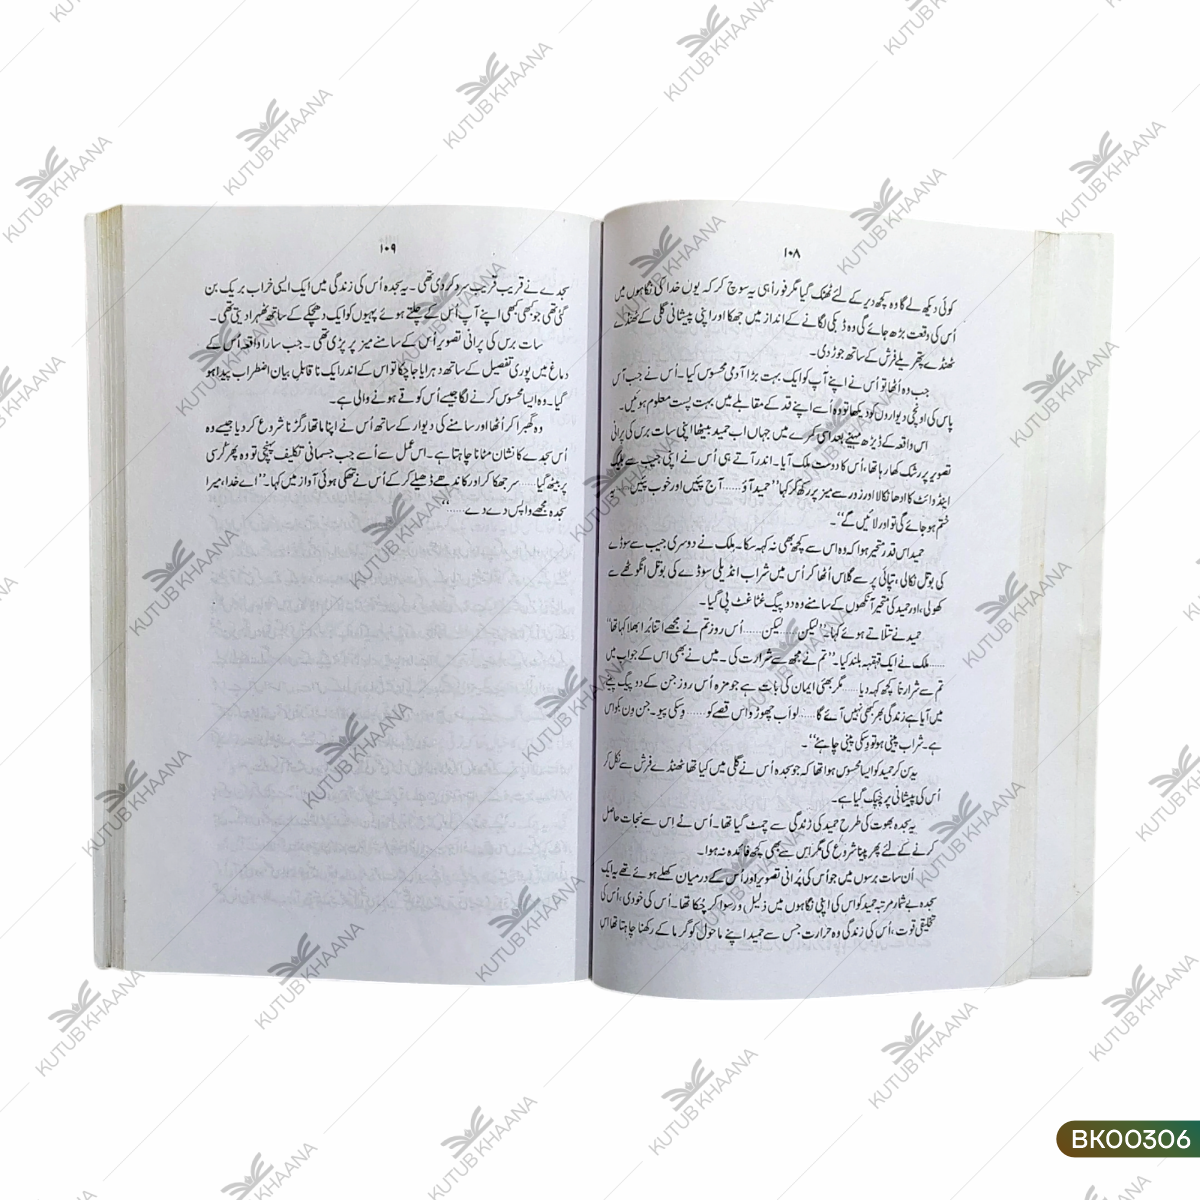 ۱۰۸
کوئی دیکھ لے گا وہ کچھ دیر کے لئے ٹھٹک گیا مگر فوراً ہی یہ سوچ کر کہ یوں خدا کی نگاہوں میں
اُس کی وقعت بڑھ جائے گی وہ ڈبکی لگانے کے انداز میں جھکا اور اپنی پیشانی گلی کے ٹھنڈے
ٹھنڈے پتھریلے فرش کے ساتھ جوڑ دی۔
جب وہ اُٹھا تو اُس نے اپنے آپ کو ایک بہت بڑا آدمی محسوس کیا۔ اُس نے جب آس
پاس کی اونچی دیواروں کو دیکھا تو وہ اُسے اپنے قد کے مقابلے میں بہت پست معلوم ہوئیں۔
اس واقعہ کے ڈیڑھ مہینے بعد اسی کمرے میں جہاں اب حمید بیٹھا اپنی سات برس کی پرانی
تصویر پر رشک کھا رہا تھا، اُس کا دوست ملک آیا۔ اندر آتے ہی اُس نے اپنی جیب سے بلیک
اینڈ وائٹ کا ادھا نکالا اور زور سے میز پر رکھ کر کہا ”حمید آؤ...... آج پئیں اور خوب پئیں...... یہ
ختم ہو جائے گی تو اور لائیں گے“۔
حمید اس قدر متحیر ہوا کہ وہ اس سے کچھ بھی نہ کہہ سکا۔ ملک نے دوسری جیب سے سوڈے
کی بوتل نکالی، تپائی پر سے گلاس اُٹھا کر اُس میں شراب انڈیلی سوڈے کی بوتل انگوٹھے سے
کھولی، اور حمید کی متحیر آنکھوں کے سامنے وہ دو پیگ غٹا غٹ پی گیا۔
حمید نے تتلاتے ہوئے کہا۔ ”لیکن...... لیکن...... اُس روز تم نے مجھے اتنا بُرا بھلا کہا تھا“
...... ملک نے ایک قہقہہ بلند کیا۔ ”تم نے مجھ سے شرارت کی۔ میں نے بھی اس کے جواب میں
تم سے شرارتاً کچھ کہہ دیا...... مگر بھئی ایمان کی بات ہے جو مزہ اُس روز جن کے دو پیگ پینے
میں آیا ہے زندگی بھر کبھی نہیں آئے گا...... لو اب چھوڑو اس قصے کو...... وسکی پیو۔ جن ون بکواس
ہے۔ شراب پینی ہو تو وسکی پینی چاہئے“۔
یہ سن کر حمید کو ایسا محسوس ہوا تھا کہ جو سجدہ اُس نے گلی میں کیا تھا ٹھنڈے فرش سے نکل کر
اُس کی پیشانی پر چپک گیا ہے۔
یہ سجدہ بھوت کی طرح حمید کی زندگی سے چمٹ گیا تھا۔ اُس نے اس سے نجات حاصل
کرنے کے لئے پھر پینا شروع کی مگر اس سے بھی کچھ فائدہ نہ ہوا۔
اُن سات برسوں میں جو اُس کی پُرانی تصویر اور اُس کے درمیان کھلے ہوئے تھے یہ ایک
سجدہ بے شمار مرتبہ حمید کو اس کی اپنی نگاہوں میں ذلیل و رسوا کر چکا تھا۔ اُس کی خودی، اُس کی
تخلیقی قوت، اُس کی زندگی وہ حرارت جس سے حمید اپنے ماحول کو گرما کے رکھنا چاہتا تھا اس
۱۰۹
سجدے نے قریب قریب سرد کر دی تھی۔ یہ سجدہ اُس کی زندگی میں ایک ایسی خراب بریک بن
گئی تھی جو کبھی کبھی اپنے آپ اُس کے چلتے ہوئے پہیوں کو ایک دھچکے کے ساتھ ٹھہرا دیتی تھی۔
سات برس کی پرانی تصویر اُس کے سامنے میز پر پڑی تھی۔ جب سارا واقعہ اُس کے
دماغ میں پوری تفصیل کے ساتھ دہرایا جا چکا تو اس کے اندر ایک ناقابل بیان اضطراب پیدا ہو
گیا۔ وہ ایسا محسوس کرنے لگا جیسے اُس کو قے ہونے والی ہے۔
وہ گھبرا کر اُٹھا اور سامنے کی دیوار کے ساتھ اُس نے اپنا ماتھا رگڑنا شروع کر دیا جیسے وہ
اُس سجدے کا نشان مٹانا چاہتا ہے۔ اس عمل سے اُسے جب جسمانی تکلیف پہنچی تو وہ پھر کُرسی
پر بیٹھ گیا...... سر جھکا کر اور کاندھے ڈھیلے کر کے اُس نے تھکی ہوئی آواز میں کہا۔ ”اے خدا، میرا
سجدہ مجھے واپس دے دے......“
KUTUB KHAANA
BK00306